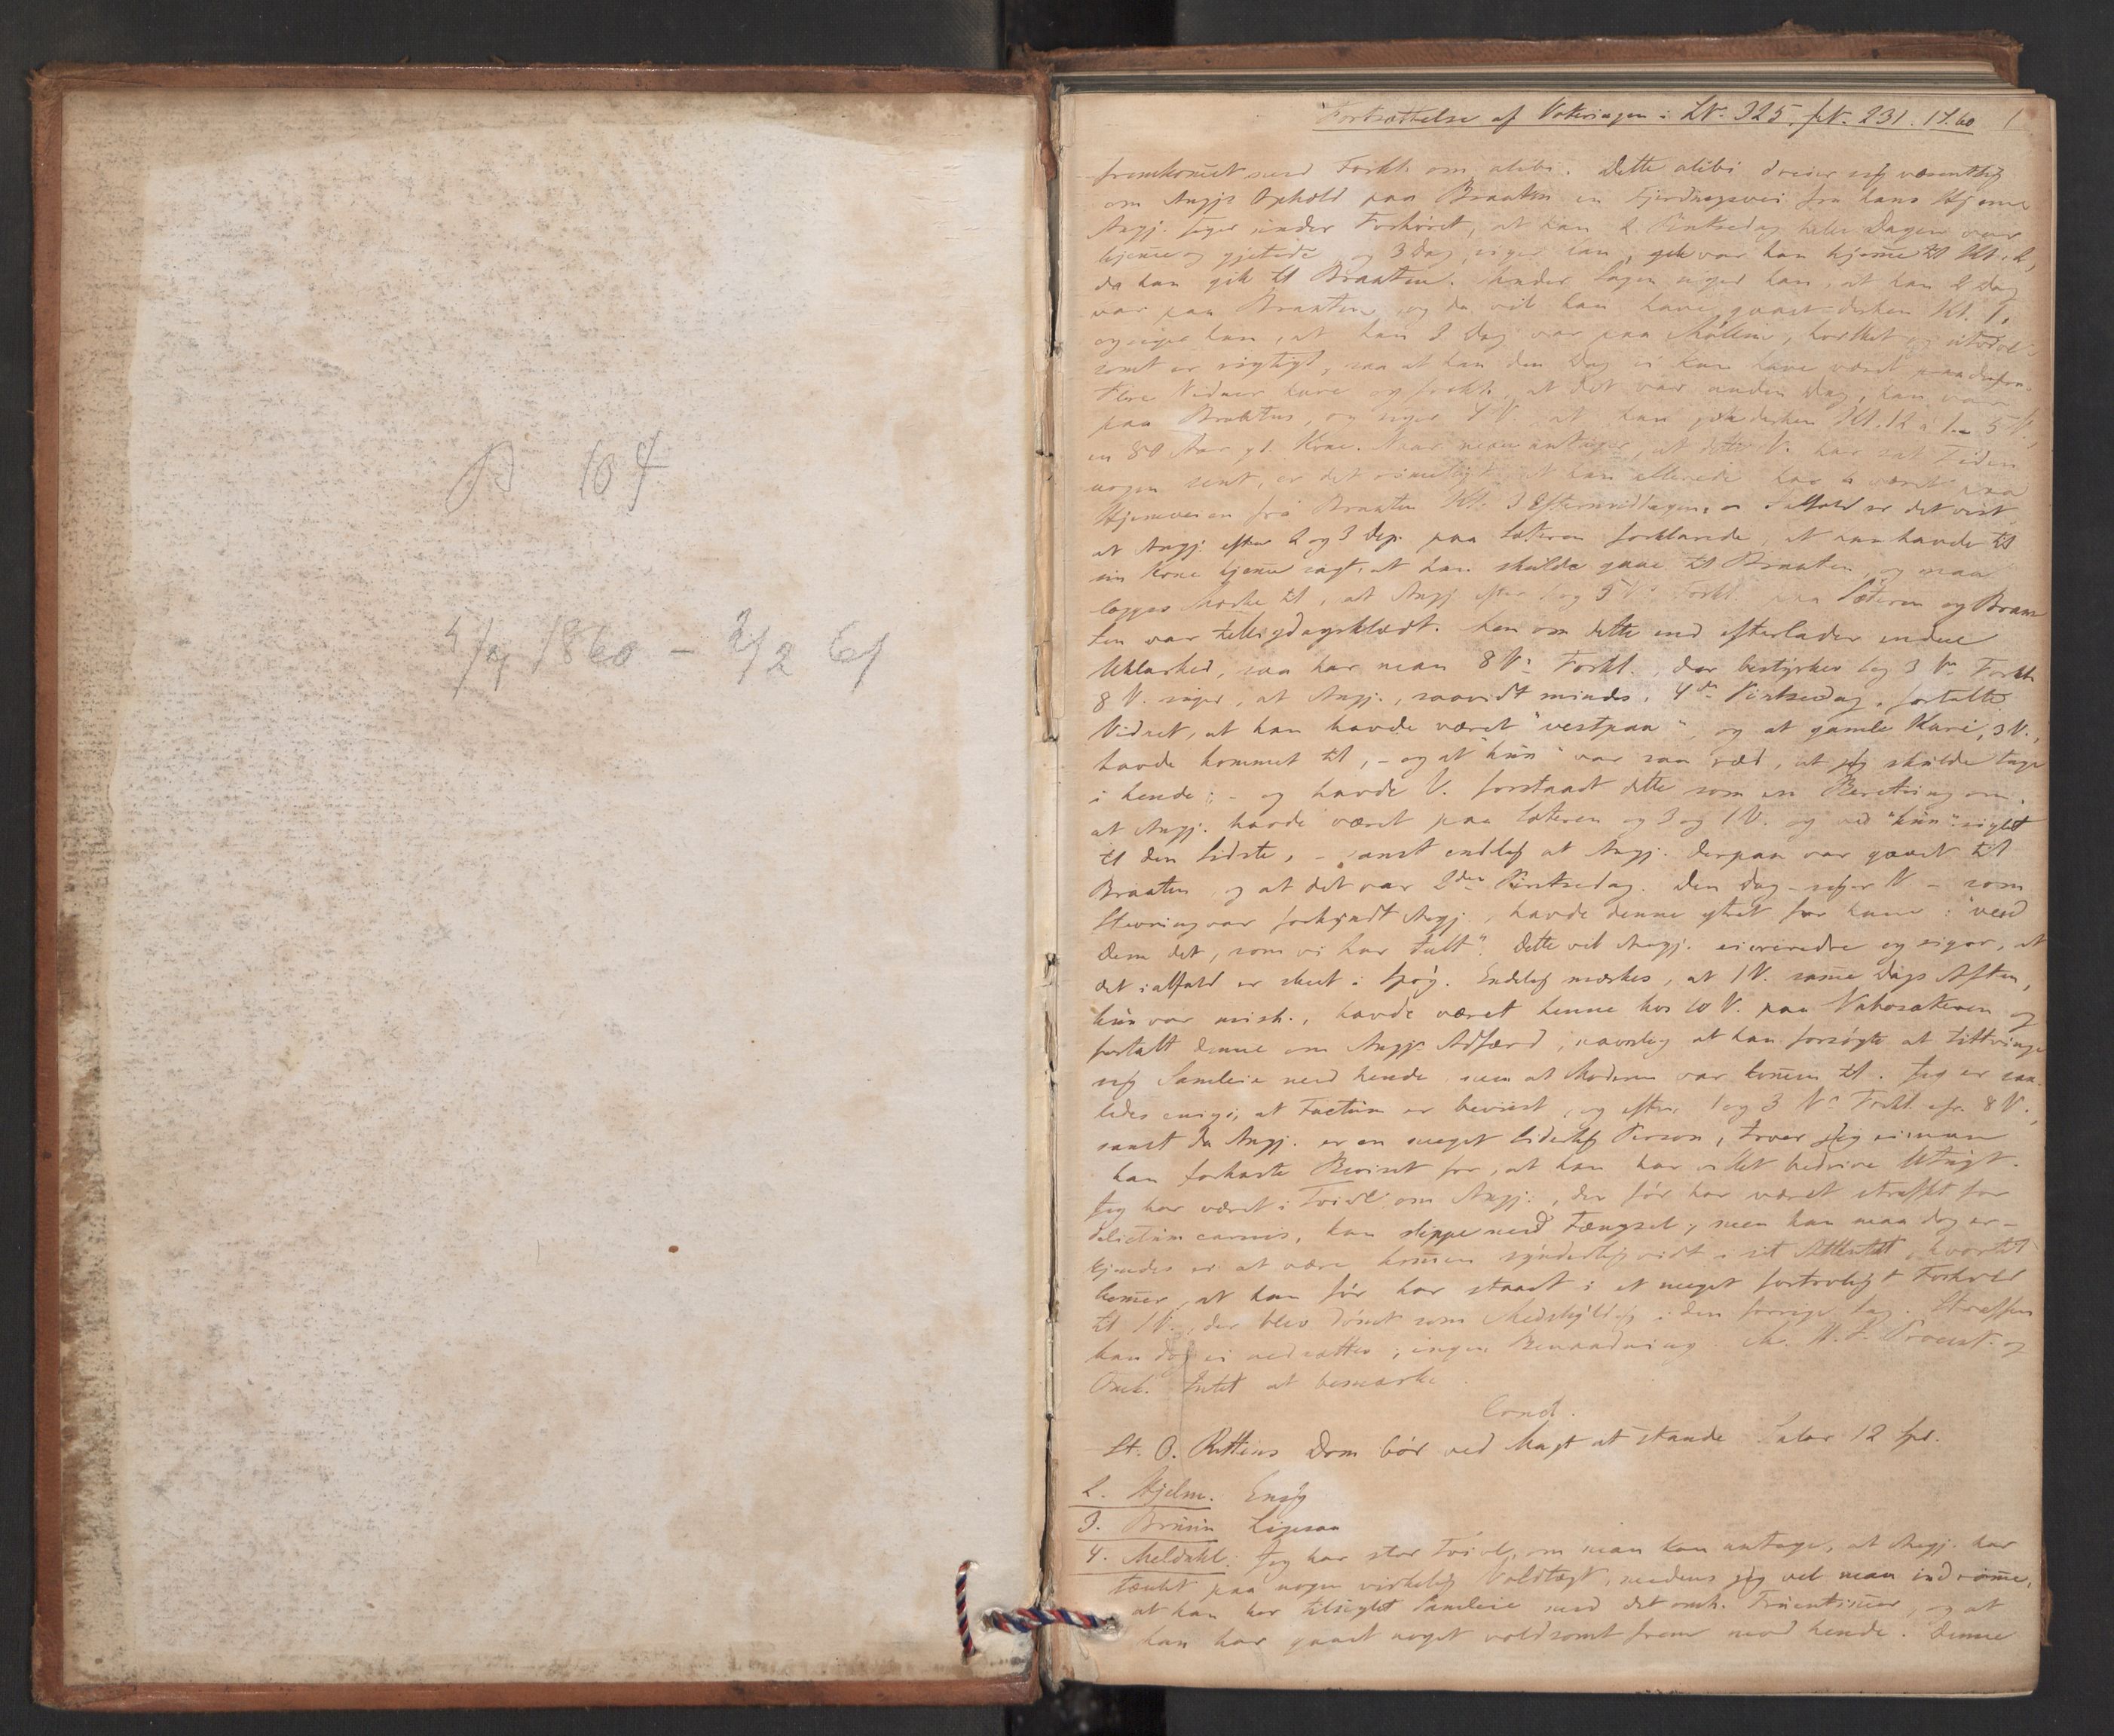 B 104
5/9 1860 - 2/2 61
Fortsættelse af Voteringen i LN. 325. fN. 231. 17.60 1
fremkommet med Forkl. om alibi. Dette alibi dreier sig væsentlig
om Angjs Ophold paa Braaten en Fjerdingsvei fra hans Hjem
Angj. siger under Forhøret, at han 2 Pintsedag hele Dagen var
hjemme og gjetede og 3 Dag, siger han, gik var han hjemme til Kl. 2,
da han gik til Braaten. Under Sagen siger han, at han 2 Dag
var paa Braaten, og da vil han have gaaet derhen Kl. 1,
og siger han, at han 3 Dag var paa Møllen, hvilket
somt er rigtigt, saa at han den Dag ei kan have været
Flere Vidner have og forkl., at det var anden Dag, han var
paa Braaten, og siger 4 V. at han gik derhen Kl. 12 à 1. 5 V.
en 80 Aar gl. Kone. Naar man antager, at dette V. har sat Tiden
noget sent, er det rimeligt at han allerede har været paa
Hjemveien fra Braaten Kl. 3 Eftermiddagen. Ialfald er det vist
at Angj. efter 2 og 3 Dep. paa Sæteren forklarede, at han havde til
sin Kone hjemme sagt, at han skulde gaae til Braaten, og maa
lægges Mærke til, at Angj efter 1 og 5 Vs Forkl. paa Sæteren og Braa
ten var helligdagsklædt. Men om dette end efterlader endeel
Uklarhed, saa har man 8 Vs Forkl., der bestyrker 1 og 3 Vs Forkl.
8 V. siger, at Angj., saavidt mindes, 4de Pintsedag, fortalte
Vidnet, at han havde været "vestpaa", og at gamle Kari, 3 V.,
havde kommet til, - og at "hun" var saa ræd, at jeg skulde tage
i hende; - og havde V. forstaaet dette som en Beretning om,
at Angj. havde været paa Sæteren og 3 og 1 V. og ved "hun" sigtet
til den Sidste, - samt endelig at Angj. derpaa var gaaet til
Braaten og at det var 2den Pintsedag. Den Dag - siger V. - som
Stevning var forkyndt Angj., havde denne ytret for ham: "
Dem det, som vi har talt". Dette vil Angj. ei erindre og siger, at
det ialfald er skeet i Spøg. Endelig mærkes, at 1 V. samme Dags Aften,
hun var mish., havde været henne hos 10 V. paa Nabosæteren og
fortalt denne om Angjs Adfærd, navnlig at han forsøgte at tiltvinge
sig Samleie med hende, men at Moderen var kommen til. Jeg er saa
ledes enig i, at Factum er beviist, og efter 1 og 3 Vs Forkl. cfr. 8 V.,
samt da Angj. er en meget liderlig Person, troer jeg ei man
kan forkaste Beviset for, at han har villet bedrive Utugt.
Jeg har været i Tvivl om Angj., der før har været straffet for
delictum carnis, kan slippe med Fængsel; men han maa dog er-
kjendes ei at være kommen synderlig vidt i sit Attentat, hvortil
kommer, at han før har staaet i et meget fortroligt Forhold
til 1 V., der blev dømt som Medskyldig i den forrige Sag. Straffen
kan dog ei nedsættes; ingen Benaadning. Procest. og
Omk. Intet at bemærke.
Concl.
St. O. Rettens Dom bør ved Magt at stande. Salær 12 Spd.
2. Hjelm. Enig
3. Bruun Ligesaa
4. Meldahl: Jeg har stor Tvivl, om man kan antage, at Angj. har
tænkt paa nogen virkelig Voldtægt, medens jeg vel maa indrømme,
at han har tilsigtet Samleie med det omh. Fruentimmer, og at
han har gaaet noget voldsomt frem mod hende. Denne